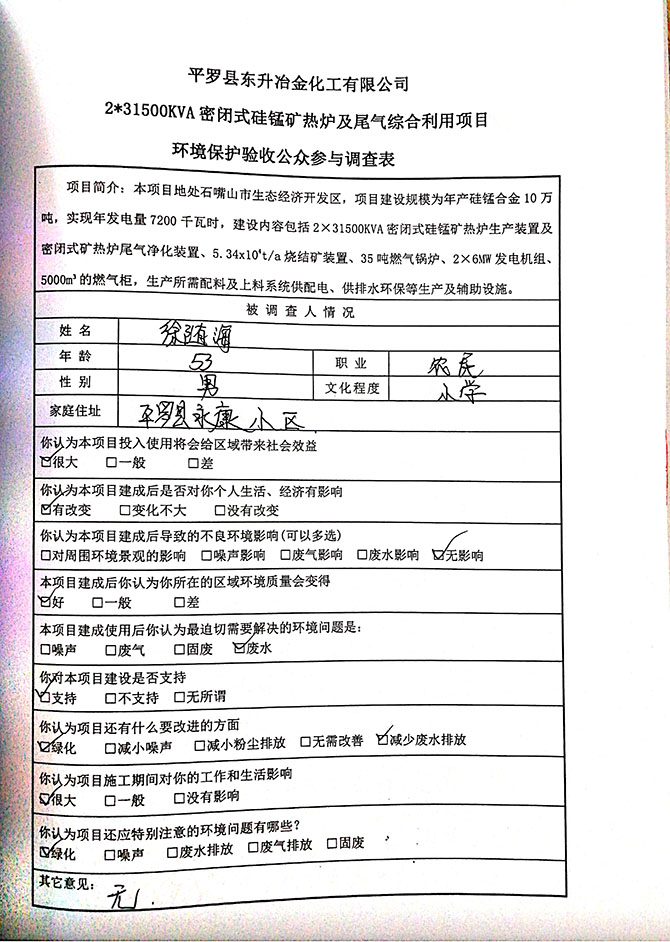 平罗县东升冶金化工有限公司
2*31500KVA 密闭式硅锰矿热炉及尾气综合利用项目
环境保护验收公众参与调查表
项目简介：本项目地处石嘴山市生态经济开发区，项目建设规模为年产硅锰合金 10 万
吨，实现年发电量 7200 千瓦时，建设内容包括 2×31500KVA 密闭式硅锰矿热炉生产装置及
密闭式矿热炉尾气净化装置、5.34x10⁴t/a 烧结矿装置、35 吨燃气锅炉、2×6MW 发电机组、
5000m³ 的燃气柜，生产所需配料及上料系统供配电、供排水环保等生产及辅助设施。
被 调 查 人 情 况
姓 名 徐随海
年 龄 53 职 业 农民
性 别 男 文化程度 小学
家庭住址 平罗县永康小区
你认为本项目投入使用将会给区域带来社会效益
☑很大 □一般 □差
你认为本项目建成后是否对你个人生活、经济有影响
☑有改变 □变化不大 □没有改变
你认为本项目建成后导致的不良环境影响(可以多选)
□对周围环境景观的影响 □噪声影响 □废气影响 □废水影响 ☑无影响
本项目建成后你认为你所在的区域环境质量会变得
☑好 □一般 □差
本项目建成使用后你认为最迫切需要解决的环境问题是：
□噪声 □废气 □固废 ☑废水
你对本项目建设是否支持
☑支持 □不支持 □无所谓
你认为项目还有什么要改进的方面
☑绿化 □减小噪声 □减小粉尘排放 □无需改善 ☑减少废水排放
你认为项目施工期间对你的工作和生活影响
☑很大 □一般 □没有影响
你认为项目还应特别注意的环境问题有哪些？
☑绿化 □噪声 □废水排放 □废气排放 □固废
其它意见： 无.